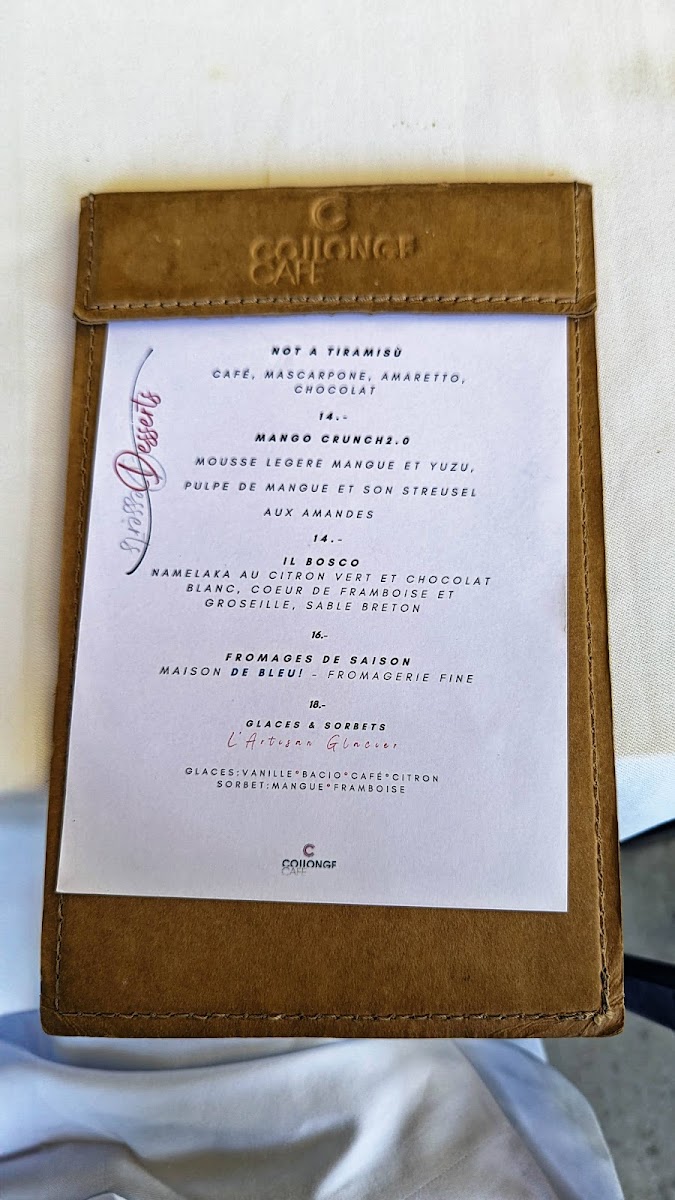 C
COLLONGE
CAFE
Desserts
Desserts
NOT A TIRAMISÙ
CAFÉ, MASCARPONE, AMARETTO,
CHOCOLAT
14.-
MANGO CRUNCH2.0
MOUSSE LEGERE MANGUE ET YUZU,
PULPE DE MANGUE ET SON STREUSEL
AUX AMANDES
14.-
IL BOSCO
NAMELAKA AU CITRON VERT ET CHOCOLAT
BLANC, COEUR DE FRAMBOISE ET
GROSEILLE, SABLE BRETON
16.-
FROMAGES DE SAISON
MAISON DE BLEU! - FROMAGERIE FINE
18.-
GLACES & SORBETS
L'Artisan Glacier
GLACES:VANILLE°BACIO°CAFÉ°CITRON
SORBET:MANGUE°FRAMBOISE
C
COLLONGE
CAFE